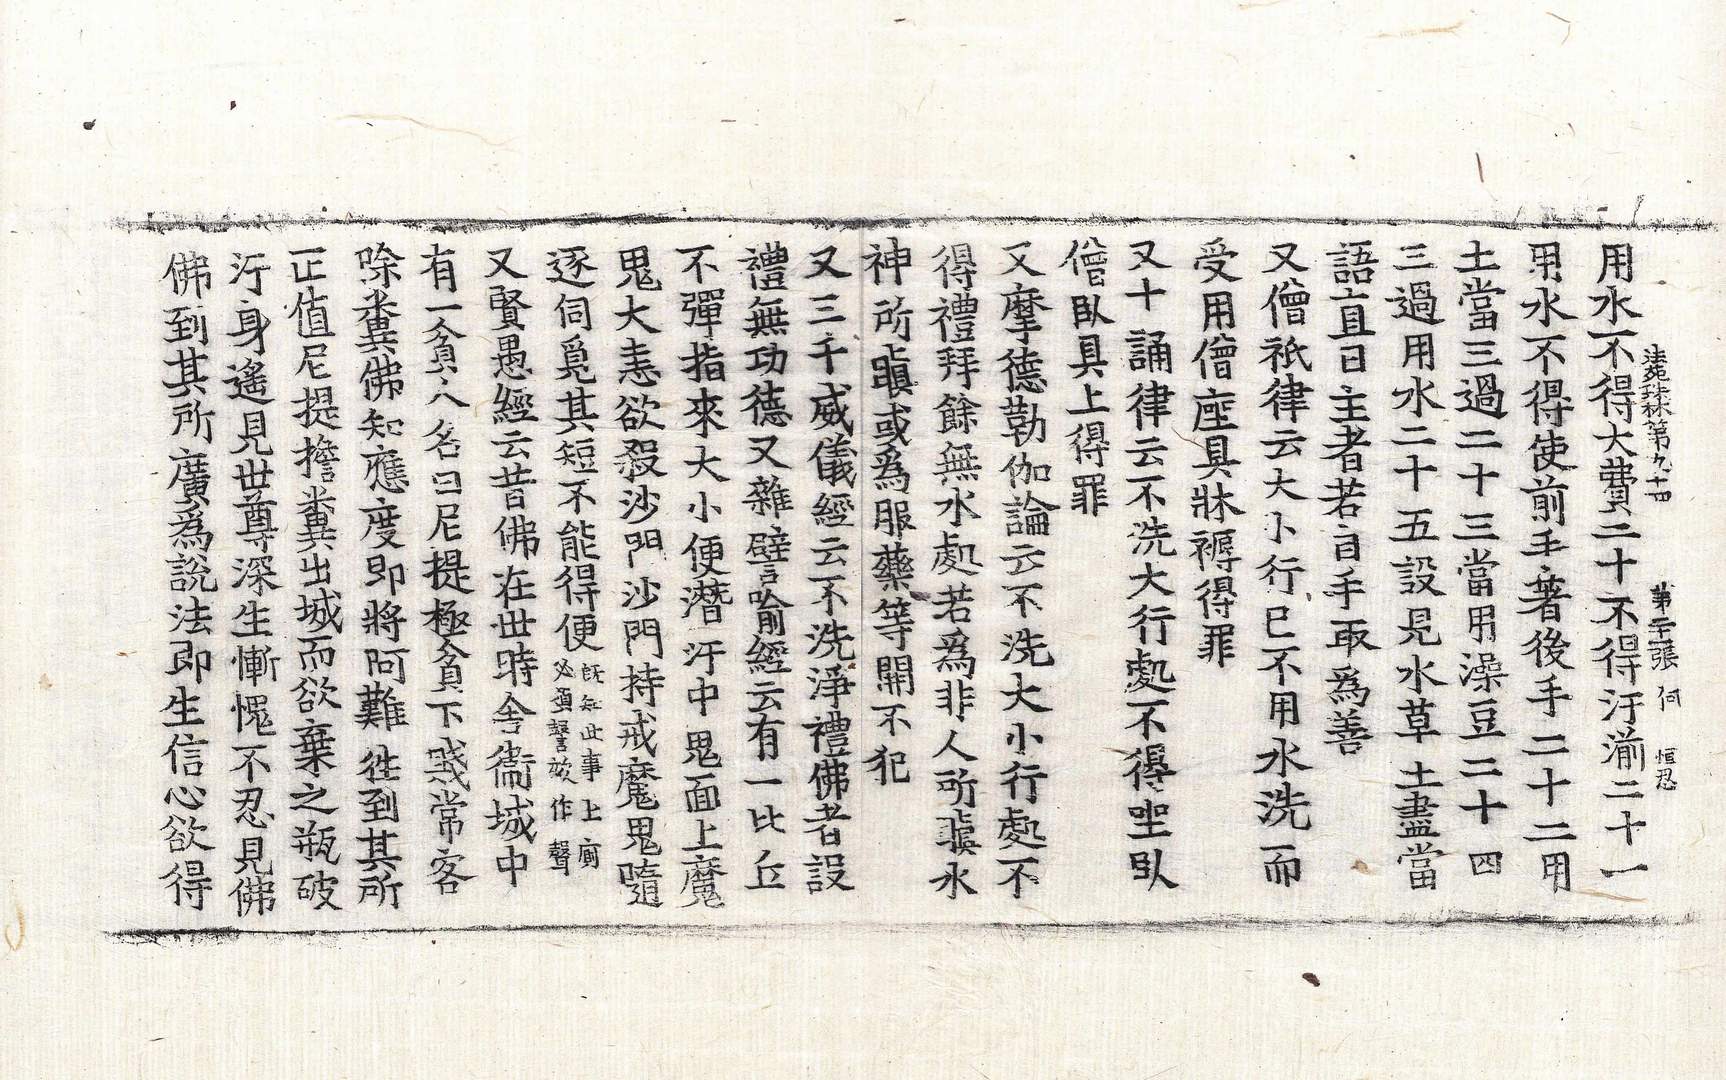 法苑珠林第九十四 第二十張 何 恒忍
用水不得大費二十不得汙湔二十一
用水不得使前手著後手二十二用
土當三過二十三當用澡豆二十四
三過用水二十五設見水草土盡當
語直日主者若自手取為善
又僧祇律云大小行已不用水洗而
受用僧座具牀褥得罪
又十誦律云不洗大行處不得坐臥
僧臥具上得罪
又摩德勒伽論云不洗大小行處不
得禮拜餘無水處若為非人所瞋水
神所瞋或為服藥等開不犯
又三千威儀經云不洗淨禮佛者設
禮無功德又雜譬喻經云有一比丘
不彈指來大小便濳汙中鬼面上魔
鬼大恚欲殺沙門沙門持戒魔鬼隨
逐伺覓其短不能得便既知此事上廁必須謦欬作聲
又賢愚經云昔佛在世時舍衛城中
有一貧人名曰尼提極貧下賤常客
除糞佛知應度即將阿難往到其所
正值尼提擔糞出城而欲棄之瓶破
汙身遙見世尊深生慚愧不忍見佛
佛到其所廣為說法即生信心欲得